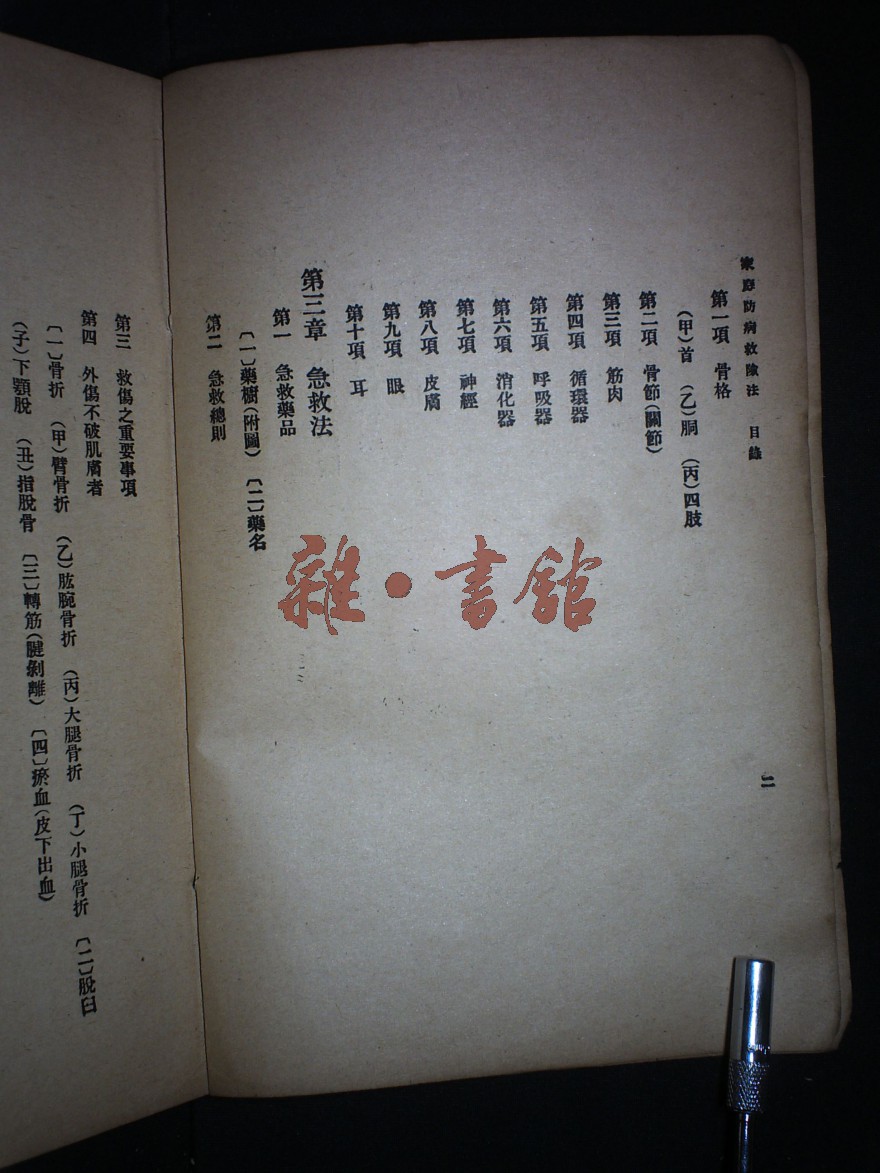 家庭防病救險法　目錄
二
第一項　骨格
(甲)首　(乙)胴　(丙)四肢
第二項　骨節(關節)
第三項　筋肉
第四項　循環器
第五項　呼吸器
第六項　消化器
第七項　神經
第八項　皮膚
第九項　眼
第十項　耳
第三章　急救法
第一　急救藥品
〔一〕藥櫥(附圖)　〔二〕藥名
第二　急救總則
第三　救傷之重要事項
第四　外傷不破肌膚者
〔一〕骨折　(甲)臂骨折　(乙)肱腕骨折　(丙)大腿骨折　(丁)小腿骨折　〔二〕脫臼
(子)下顎脫　(丑)指脫骨　〔三〕轉筋(腱剝離)　〔四〕瘀血(皮下出血)
雜·書館